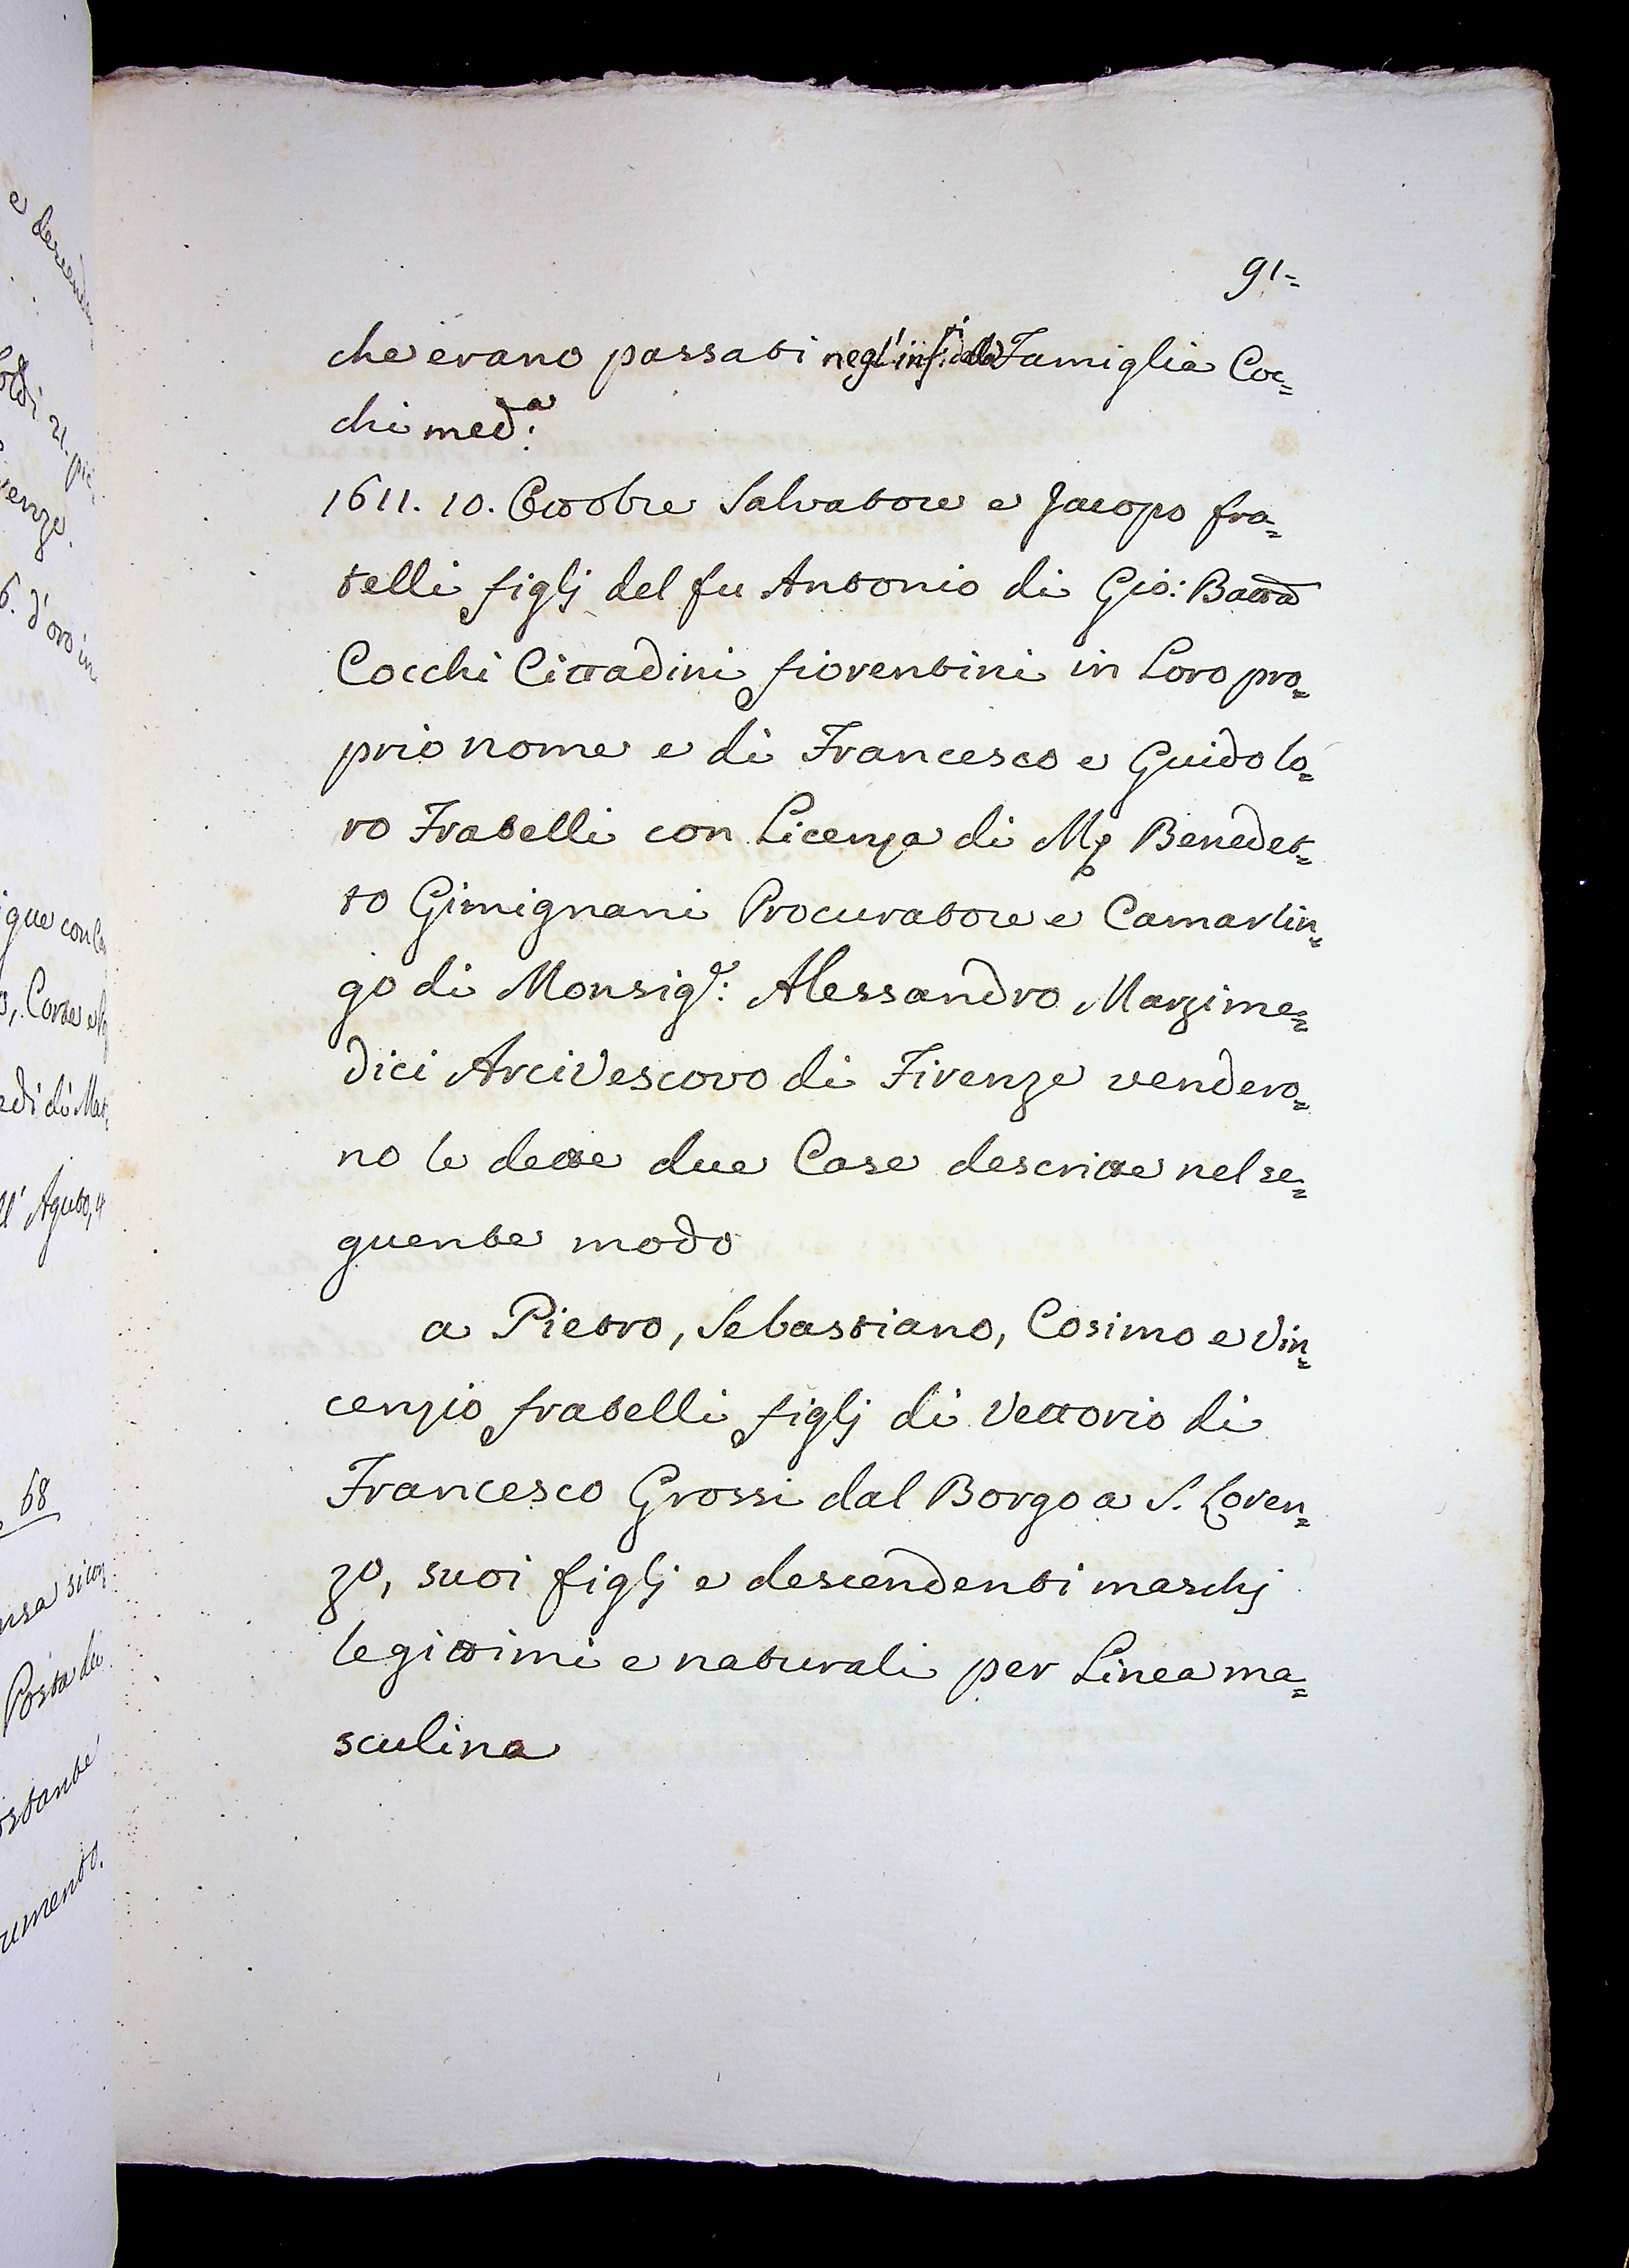 91=
che erano passati negl'inf.i della Famiglia Coc=
chi med.a
1611. 10. Ottobre Salvatore e Jacopo fra=
telli figlj del fu Antonio di Gio: Batta
Cocchi Cittadini fiorentini in loro pro=
prio nome e di Francesco e Guido lo=
ro Fratelli con Licenza di Mg Benedet=
to Gimignani Procuratore e Camarlin=
go di Monsig.r: Alessandro Marzime=
dici Arcivescovo di Firenze vendero=
no le dette due Case descritte nel se=
guente modo
a Pietro, Sebastiano, Cosimo e Vin=
cenzio fratelli figlj di Vettorio di
Francesco Grossi dal Borgo a S. Loren=
zo, suoi figlj e descendenti maschj
legittimi e naturali per Linea ma=
sculina